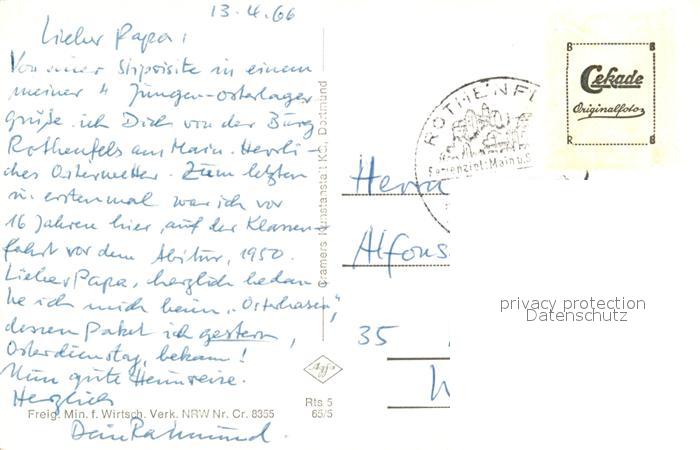 13.4.66
Lieber Papa,
Von einer Stippvisite in einem
meiner 4 Jungen-Osterlager
grüße ich Dich von der Burg
Rothenfels am Main. Herrli-
ches Osterwetter. Zum letzten
u. erstenmal war ich vor
16 Jahren hier, auf der Klassen-
fahrt vor dem Abitur, 1950.
Lieber Papa, herzlich bedan
ke ich mich beim „Osterhasen",
dessen Paket ich gestern,
Osterdienstag, bekam!
Nun gute Heimreise.
Herzlich
Dein Raimund.
Freig. Min. f. Wirtsch. Verk. NRW Nr. Cr. 8355
Cramers Kunstanstalt KG, Dortmund
Agfa
Rts 5
65/5
ROTHENFE
Ferienziel: Main u. S
B B
Cekade
Originalfoto
R B
Herrn
Alfons
35
privacy protection
Datenschutz